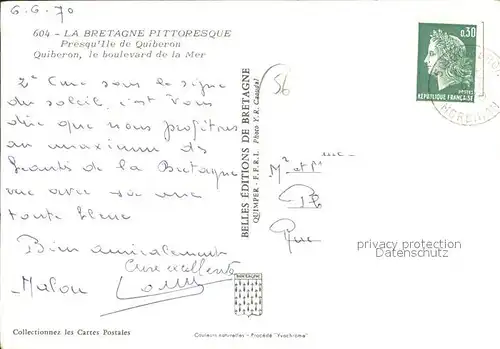 6.6.70
604 - LA BRETAGNE PITTORESQUE
Presqu'Ile de Quiberon
Quiberon, le boulevard de la Mer
2e Cure sous le signe
du soleil, c'est vous
dire que nous profitons
au maximum des
de la Bretagne
vue avec
toute bleue
Bien amicalement
Cure excellente
Malou
BELLES ÉDITIONS DE BRETAGNE
QUIMPER - F.F.R.I. Photo Y.R. Caoudal
56
0,30
POSTES
RÉPUBLIQUE FRANÇAISE
MORBIHAN
Mr et Mme
Rue
privacy protection
Datenschutz
BRETAGNE
Collectionnez les Cartes Postales
Couleurs naturelles - Procédé "Yvachrome"